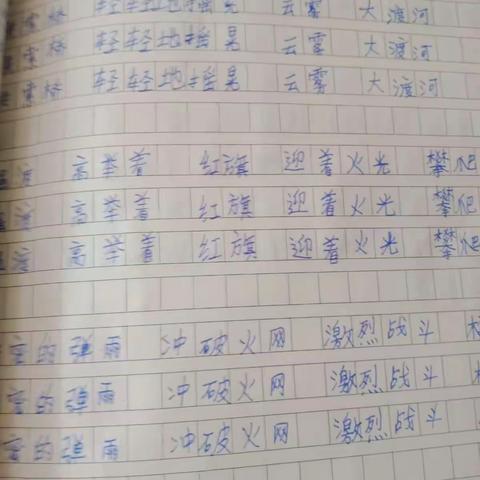 索桥 轻轻地摇晃 云雾 大渡河
索桥 轻轻地摇晃 云雾 大渡河
索桥 轻轻地摇晃 云雾 大渡河
高举着 红旗 迎着火光 攀爬
高举着 红旗 迎着火光 攀爬
高举着 红旗 迎着火光 攀爬
密的弹雨 冲破火网 激烈战斗
密的弹雨 冲破火网 激烈战斗
密的弹雨 冲破火网 激烈战斗